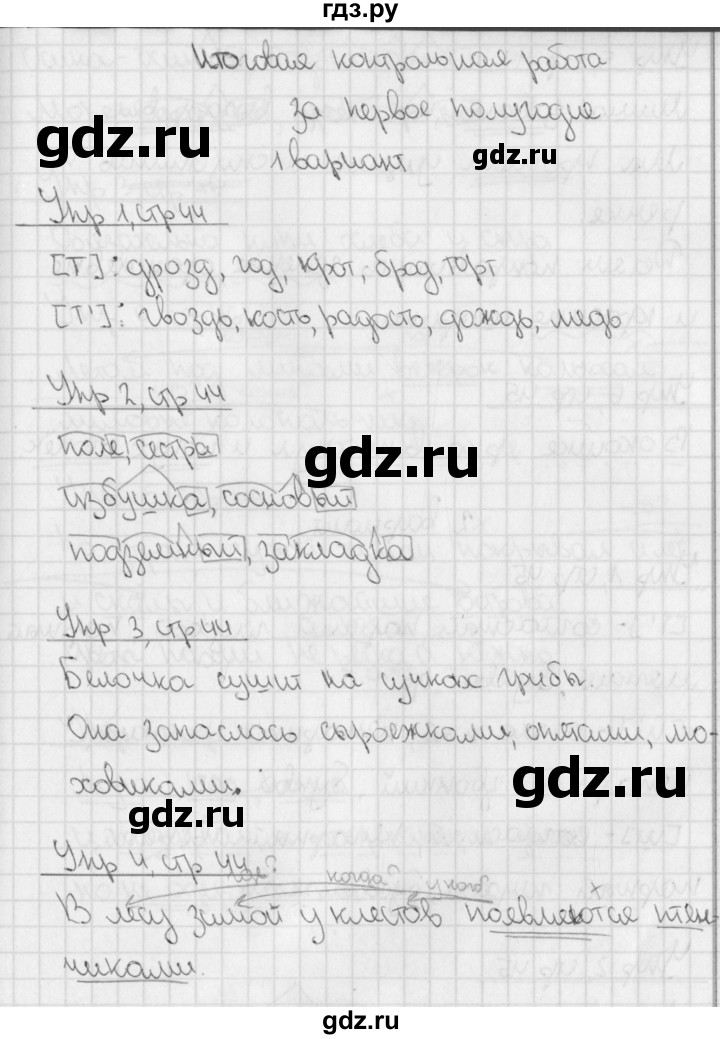 гдз.ру
Итоговая контрольная работа
за первое полугодие
gdz.ru
gdz.ru
1 вариант
Упр 1, стр 44
[т]: дрозд, год, крот, брод, торт
[т']: гвоздь, кость, радость, дождь, медь
Упр 2, стр 44
поле, сестра
gdz.ru
избушка, сосновый
подземный, закладка
Упр 3, стр 44
Белочка сушит на сучках грибы.
Она запаслась сыроежками, опятами, мо-
gdz.ru
ховиками.
gdz.ru
Упр 4, стр 44
где? когда? у кого?
х
В лесу зимой у клестов появляются птен-
чиками.
gdz.ru
gdz.ru